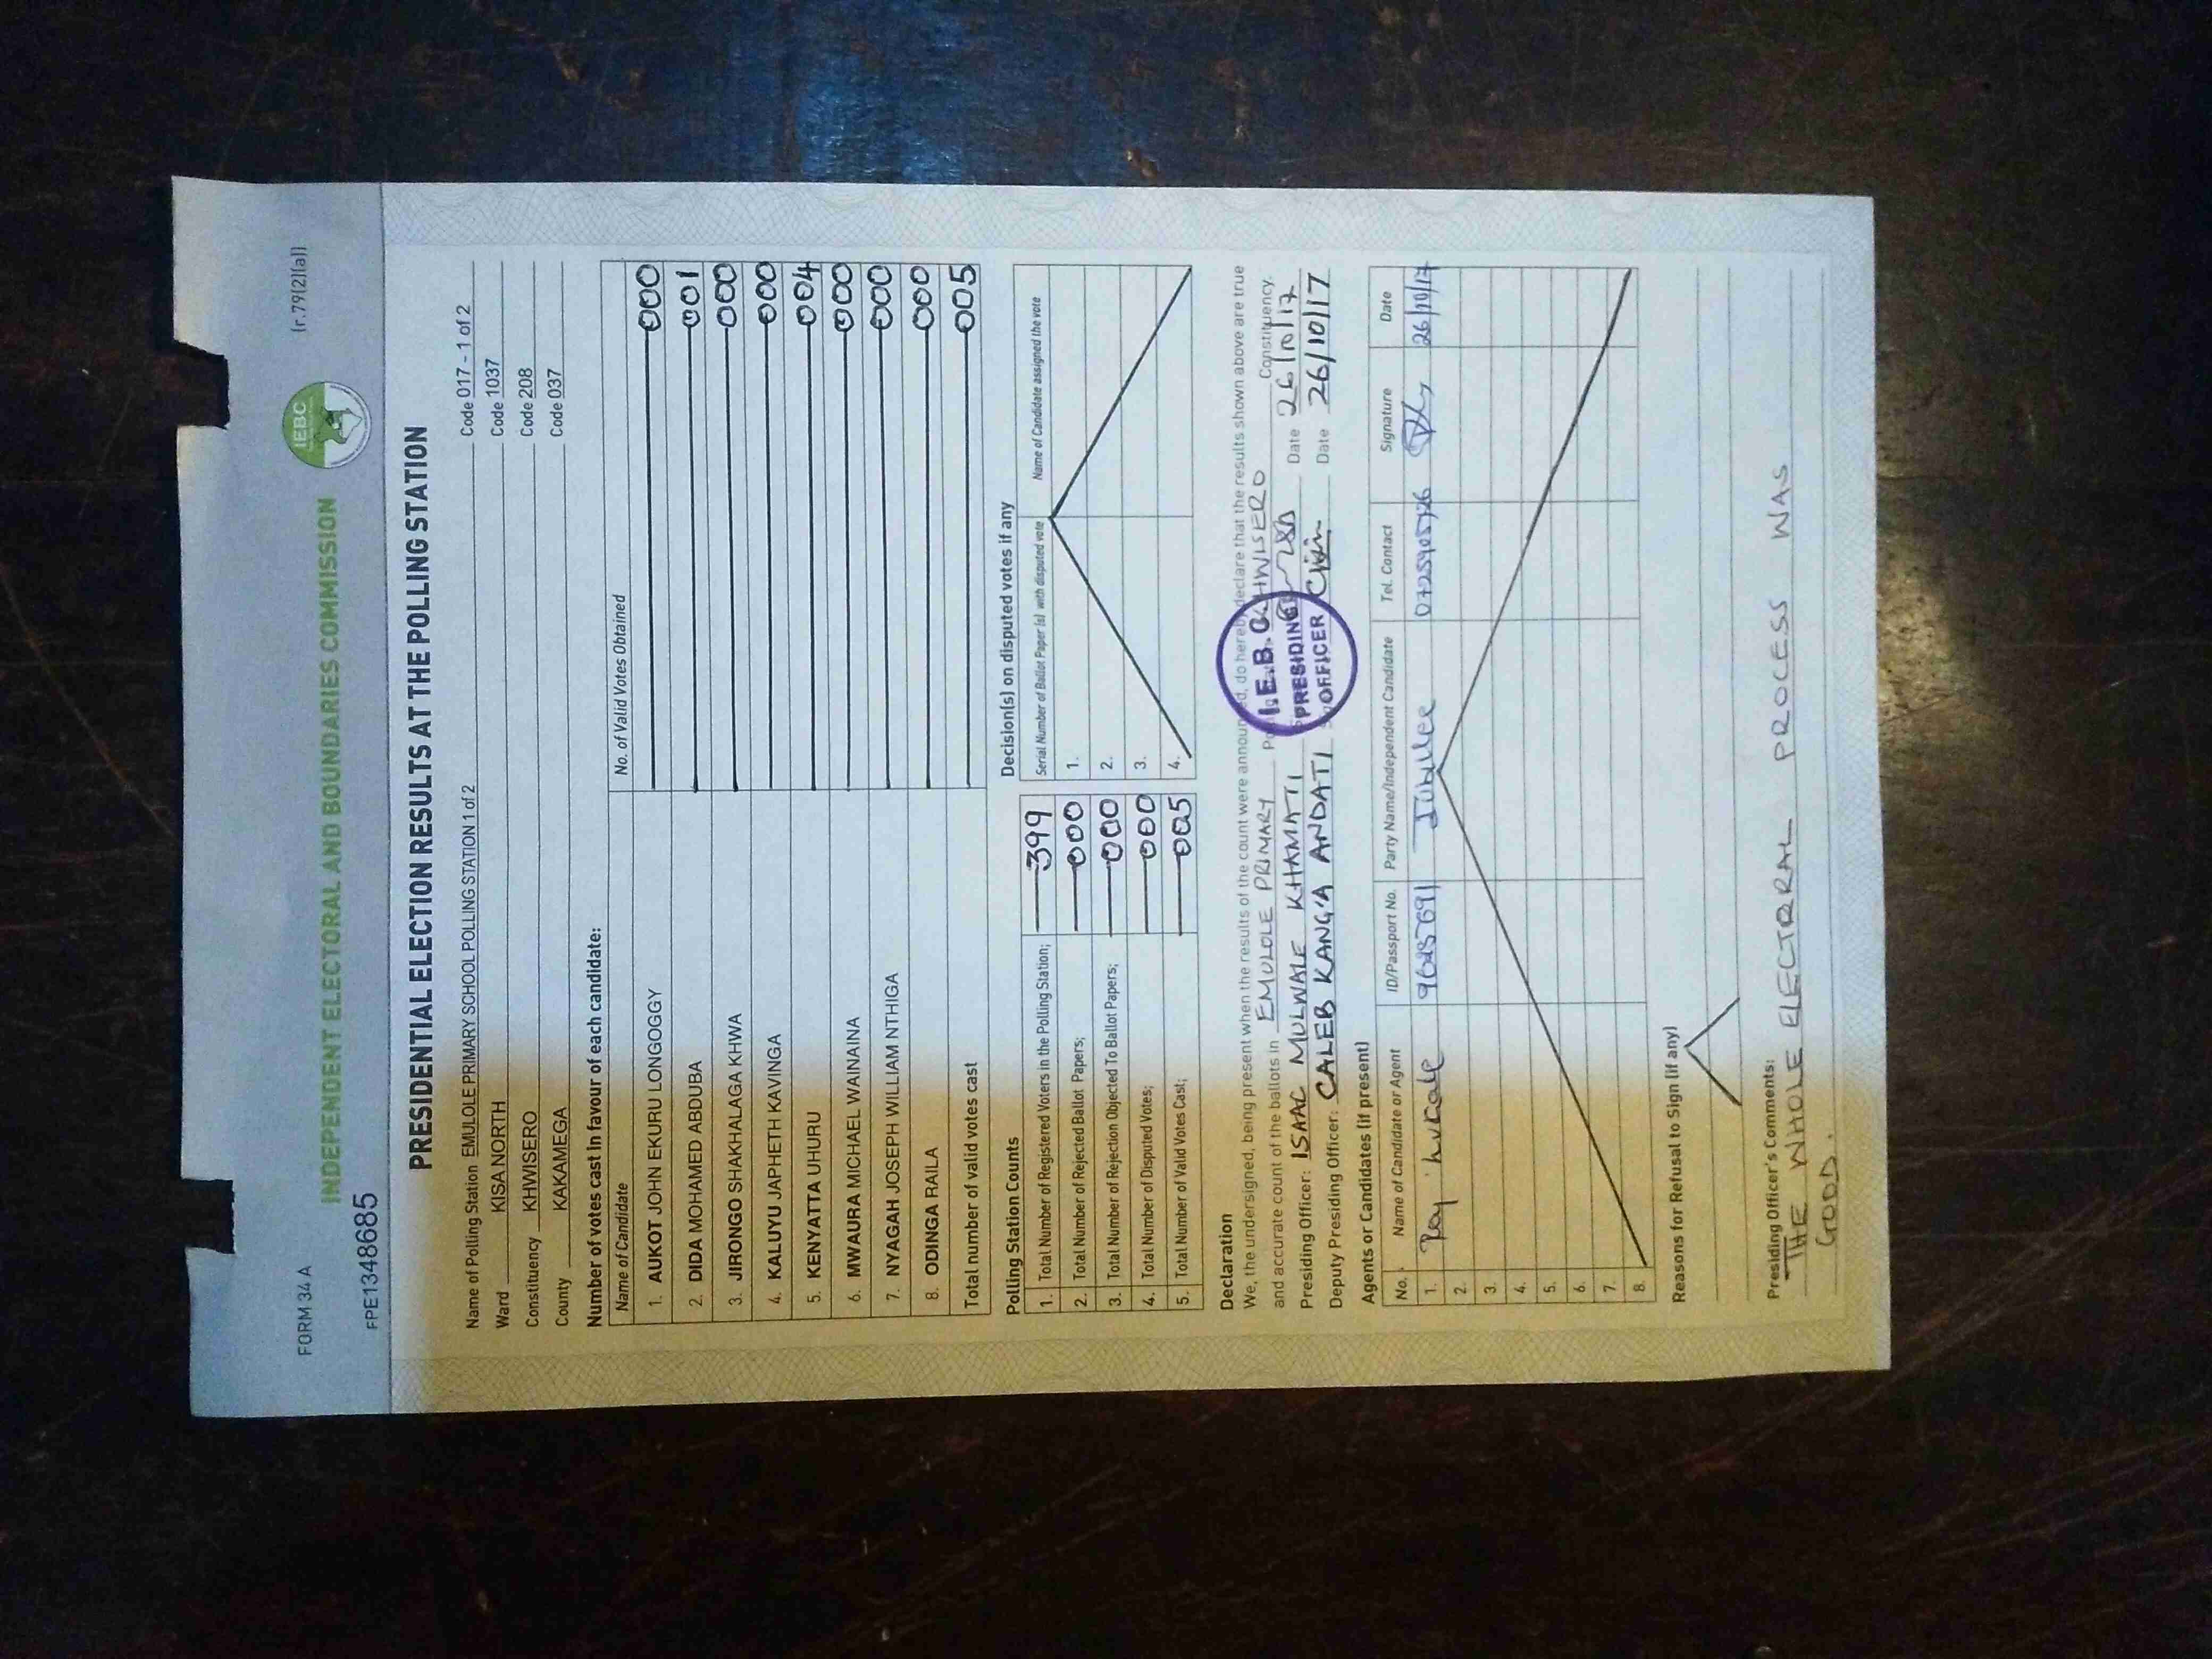 FORM 34A
(r.79(2)(a))
IEBC
INDEPENDENT ELECTORAL AND BOUNDARIES COMMISSION
FPE1348685
PRESIDENTIAL ELECTION RESULTS AT THE POLLING STATION
Name of Polling Station EMULOLE PRIMARY SCHOOL POLLING STATION 1 of 2 Code 017 - 1 of 2
Ward KISA NORTH Code 1037
Constituency KHWISERO Code 208
County KAKAMEGA Code 037
Number of votes cast in favour of each candidate:
Name of Candidate No. of Valid Votes Obtained
1. AUKOT JOHN EKURU LONGOGGY 000
2. DIDA MOHAMED ABDUBA 001
3. JIRONGO SHAKHALAGA KHWA 000
4. KALUYU JAPHETH KAVINGA 000
5. KENYATTA UHURU 004
6. MWAURA MICHAEL WAINAINA 000
7. NYAGAH JOSEPH WILLIAM NTHIGA 000
8. ODINGA RAILA 000
Total number of valid votes cast 005
Polling Station Counts
1. Total Number of Registered Voters in the Polling Station; 399
2. Total Number of Rejected Ballot Papers; 000
3. Total Number of Rejection Objected To Ballot Papers; 000
4. Total Number of Disputed Votes; 000
5. Total Number of Valid Votes Cast; 005
Decision(s) on disputed votes if any
Serial Number of Ballot Paper (s) with disputed vote Name of Candidate assigned the vote
1.
2.
3.
4.
Declaration
We, the undersigned, being present when the results of the count were announced, do hereby declare that the results shown above are true
and accurate count of the ballots in EMULOLE PRIMARY KHWISERO Constituency.
Presiding Officer: ISAAC MULWALE KHAMATI Date 26/10/17
Deputy Presiding Officer: CALEB KANG'A ANDATI Date 26/10/17
I.E.B.C
PRESIDING
OFFICER
Agents or Candidates (if present)
No. Name of Candidate or Agent ID/Passport No. Party Name/Independent Candidate Tel. Contact Signature Date
1. Jubilee 26/10/17
2.
3.
4.
5.
6.
7.
8.
Reasons for Refusal to Sign (if any)
Presiding Officer's Comments:
THE WHOLE ELECTORAL PROCESS WAS
GOOD.